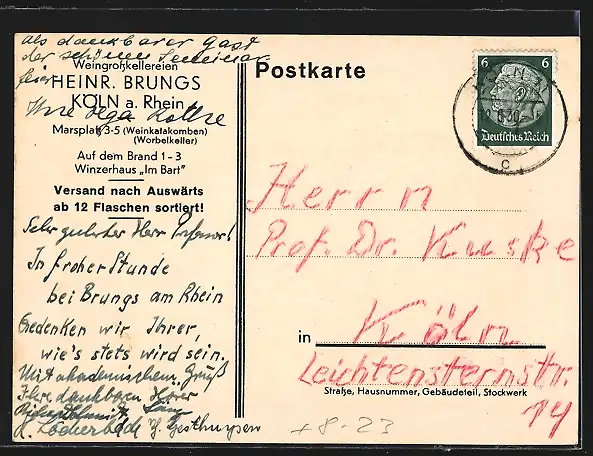 als dankbarer Gast
der schönen Seminar
feier
Weingroßkellereien
HEINR. BRUNGS
KÖLN a. Rhein
Ihre Olga
Marsplatz 3-5 (Weinkatakomben)
(Worbelkeller)
Auf dem Brand 1-3
Winzerhaus „Im Bart"
Versand nach Auswärts
ab 12 Flaschen sortiert!
Sehr geehrter Herr Professor!
In froher Stunde
bei Brungs am Rhein
Gedenken wir Ihrer,
wie's stets wird sein.
Mit akademischem Gruß
Ihre dankbaren Hörer
Postkarte
6 6
Deutsches Reich
Herrn
Prof. Dr. Kuske
in Köln
Leichtensternstr.
Straße, Hausnummer, Gebäudeteil, Stockwerk
14
+8-23